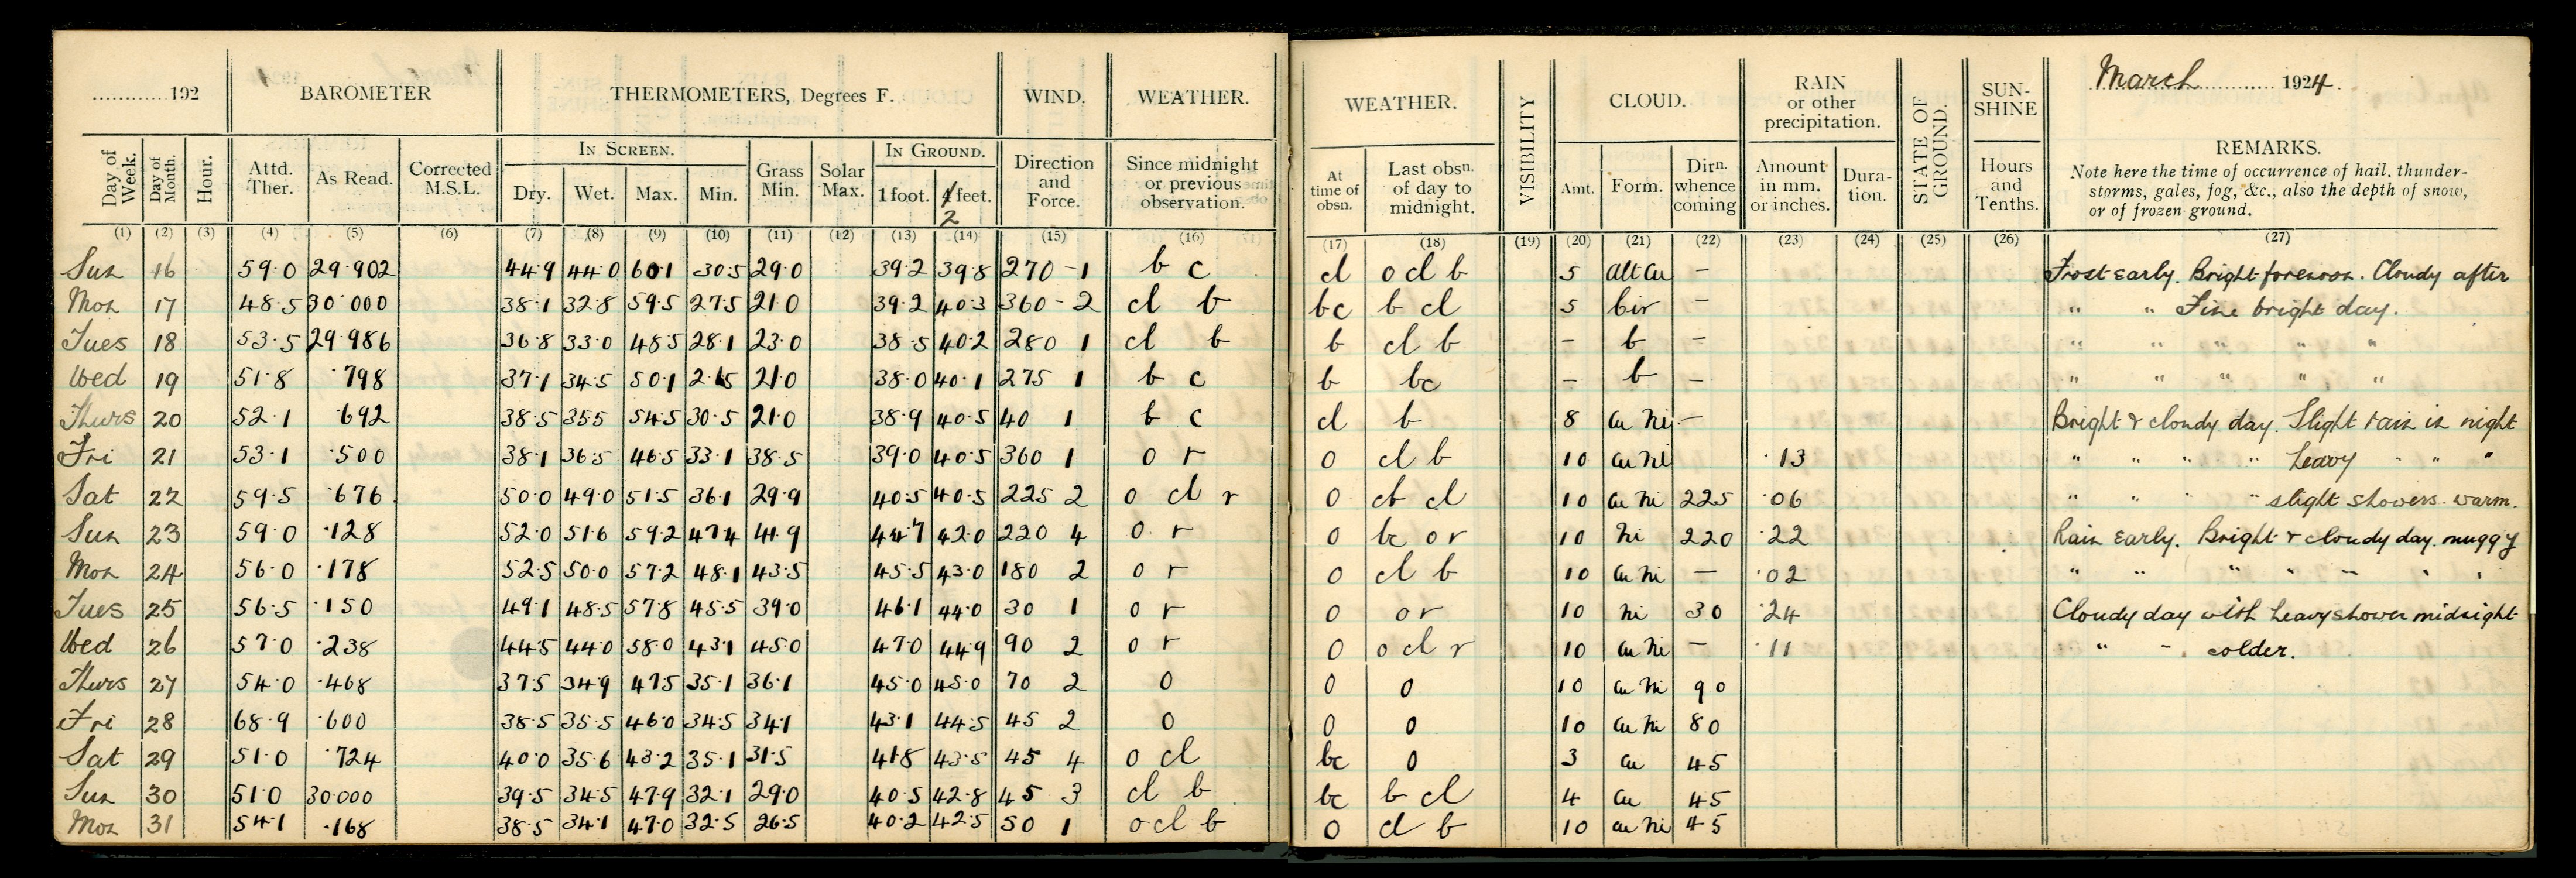 ............192
BAROMETER
THERMOMETERS, Degrees F.
WIND.
WEATHER.
WEATHER.
VISIBILITY
CLOUD.
RAIN
or other
precipitation.
STATE OF
GROUND.
SUN-
SHINE
March 1924.
Day of
Week.
Day of
Month.
Hour.
Attd.
Ther.
As Read.
Corrected
M.S.L.
IN SCREEN.
Dry. Wet. Max. Min.
Grass
Min.
Solar
Max.
IN GROUND.
1 foot. 4 feet.
2
Direction
and
Force.
Since midnight
or previous
observation.
At
time of
obsn.
Last obsn.
of day to
midnight.
Amt. Form.
Dirn.
whence
coming
Amount
in mm.
or inches.
Dura-
tion.
Hours
and
Tenths.
REMARKS.
Note here the time of occurrence of hail, thunder-
storms, gales, fog, &c., also the depth of snow,
or of frozen ground.
(1) (2) (3) (4) (5) (6) (7) (8) (9) (10) (11) (12) (13) (14) (15) (16) (17) (18) (19) (20) (21) (22) (23) (24) (25) (26) (27)
Sun 16 59.0 29.902 44.9 44.0 60.1 30.5 29.0 39.2 39.8 270 - 1 b c cl o cl b 5 alt Cu — Frost early. Bright forenoon. Cloudy after
Mon 17 48.5 30.000 38.1 32.8 59.5 27.5 21.0 39.2 40.3 360 - 2 cl b bc b cl 5 Cir — " " Fine bright day.
Tues 18 53.5 29.986 36.8 33.0 48.5 28.1 23.0 38.5 40.2 280 1 cl b b cl b — b — " " " " "
Wed 19 51.8 .798 37.1 34.5 50.1 21.0 38.0 40.1 275 1 b c b bc — b — " " " " "
Thurs 20 52.1 .692 38.5 35.5 54.5 30.5 21.0 38.9 40.5 40 1 b c cl b 8 Cu Ni — Bright & cloudy day. Slight rain in night
Fri 21 53.1 .500 38.1 36.5 46.5 33.1 38.5 39.0 40.5 360 1 o r o cl b 10 Cu Ni .13 " " " " heavy " " "
Sat 22 59.5 .676 50.0 49.0 51.5 36.1 29.9 40.5 40.5 225 2 o cl r o cl 10 Cu Ni 225 .06 " " " " slight showers. warm.
Sun 23 59.0 .128 52.0 51.6 59.2 47.4 41.9 44.7 42.0 220 4 o r o bc o r 10 Ni 220 .22 Rain early. Bright & cloudy day. muggy
Mon 24 56.0 .178 52.5 50.0 57.2 48.1 43.5 45.5 43.0 180 2 o r o cl b 10 Cu Ni — .02 " " " " " " "
Tues 25 56.5 .150 49.1 48.5 57.8 45.5 39.0 46.1 44.0 30 1 o r o o r 10 Ni 30 .24 Cloudy day with heavy shower midnight
Wed 26 57.0 .238 44.5 44.0 58.0 43.1 45.0 47.0 44.9 90 2 o r o o cl r 10 Cu Ni — .11 " " colder.
Thurs 27 54.0 .468 37.5 34.9 47.5 35.1 36.1 45.0 45.0 70 2 o o o 10 Cu Ni 90
Fri 28 68.9 .600 38.5 35.5 46.0 34.5 34.1 43.1 44.5 45 2 o o o 10 Cu Ni 80
Sat 29 51.0 .724 40.0 35.6 43.2 35.1 31.5 41.8 43.5 45 4 o cl bc o 3 Cu 45
Sun 30 51.0 30.000 39.5 34.5 47.9 32.1 29.0 40.5 42.8 45 3 cl b bc b cl 4 Cu 45
Mon 31 54.1 .168 38.5 34.1 47.0 32.5 26.5 40.2 42.5 50 1 o cl b o cl b 10 Cu Ni 45